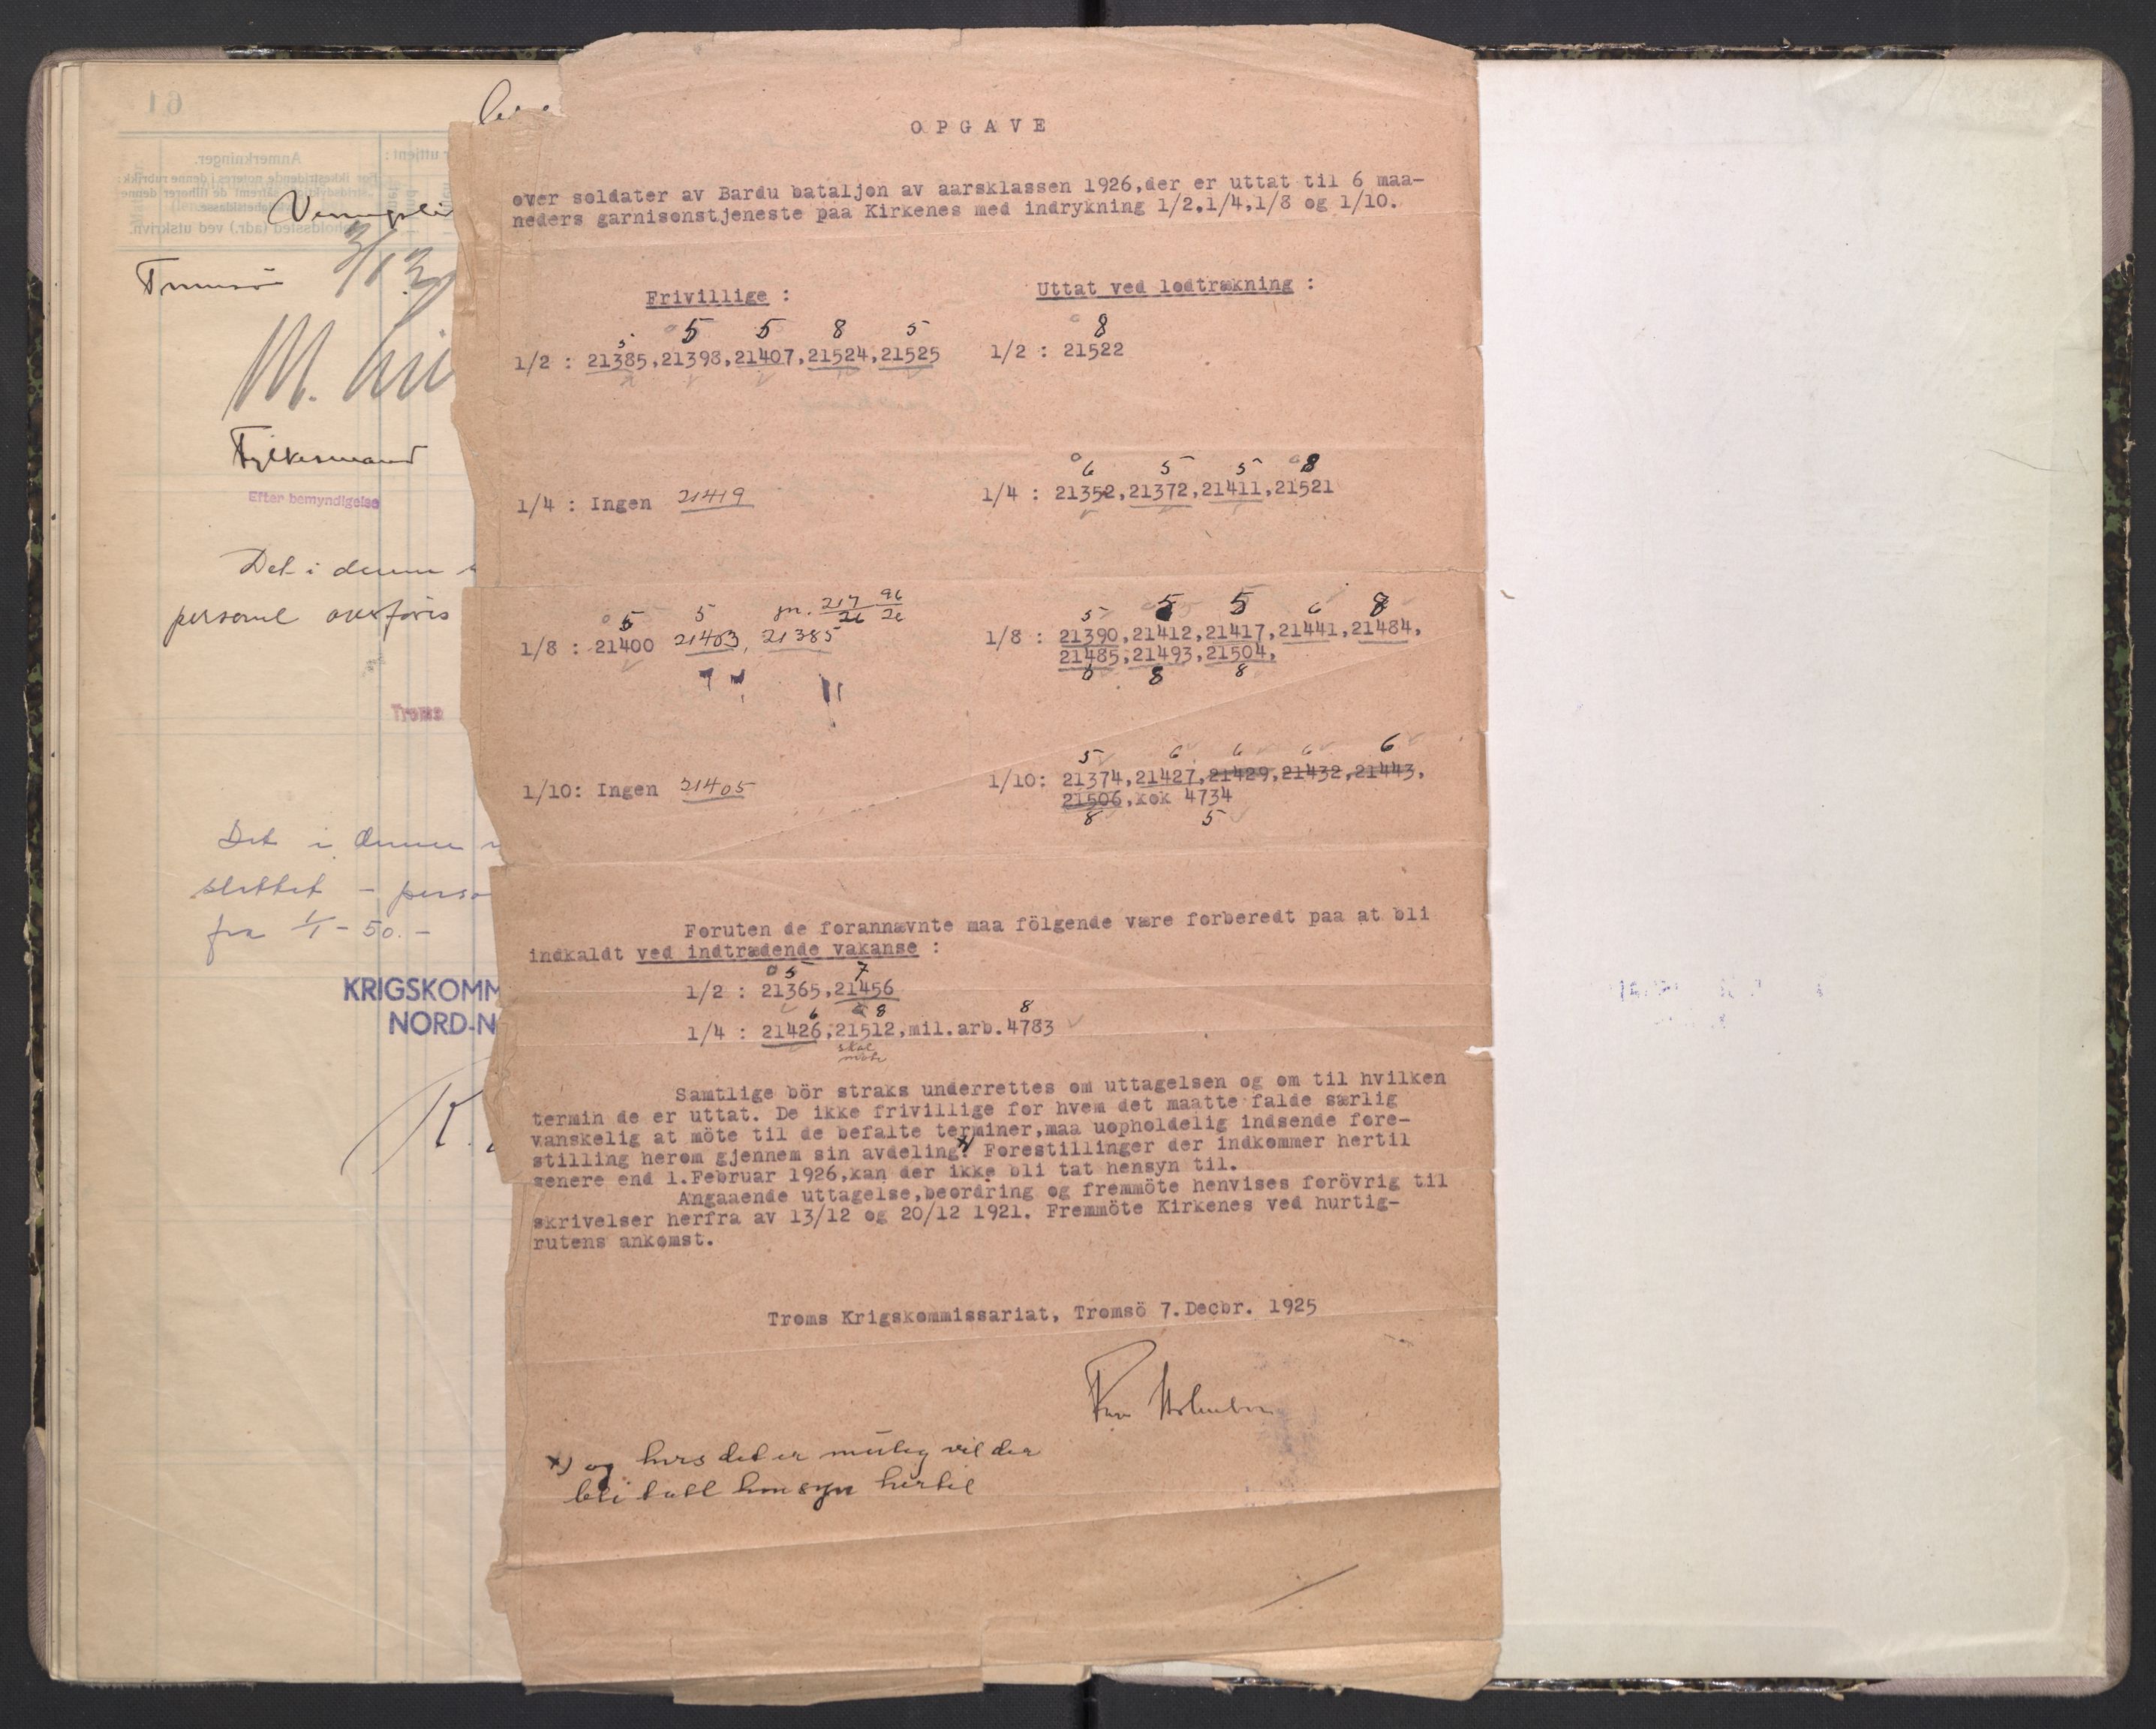 61
Anmerkninger.
Tromsö
M.
Fylkesmand
Efter bemyndigelse
Det i denne
personel overføres
Troms
Det i denne
slettet - perso
fra 1/1 - 50. -
KRIGSKOMM
NORD-N
K.
OPGAVE
over soldater av Bardu bataljon av aarsklassen 1926,der er uttat til 6 maa-
neders garnisonstjeneste paa Kirkenes med indrykning 1/2,1/4,1/8 og 1/10.
Frivillige :
Uttat ved lodtrækning :
5 5 5 8 5
1/2 : 21385,21398,21407,21524,21525
8
1/2 : 21522
1/4 : Ingen 21419
6 5 5 8
1/4 : 21352,21372,21411,21521
5 5 jn. 217/26 96/26
1/8 : 21400 21403, 21385
5 5 5 6 8
1/8 : 21390,21412,21417,21441,21484,
21485,21493,21504,
8 8 8
1/10: Ingen 21405
5 6 6 6 6
1/10: 21374,21427,21429,21432,21443,
21506,kok 4734
8 5
Foruten de forannævnte maa fölgende være forberedt paa at bli
indkaldt ved indtrædende vakanse :
5 7
1/2 : 21365,21456
6 8 8
1/4 : 21426,21512,mil.arb.4783
skal
møte
Samtlige bör straks underrettes om uttagelsen og om til hvilken
termin de er uttat. De ikke frivillige for hvem det maatte falde særlig
vanskelig at möte til de befalte terminer,maa uopholdelig indsende fore-
stilling herom gjennem sin avdeling. x) Forestillinger der indkommer hertil
senere end 1.Februar 1926,kan der ikke bli tat hensyn til.
Angaaende uttagelse,beordring og fremmöte henvises forövrig til
skrivelser herfra av 13/12 og 20/12 1921. Fremmöte Kirkenes ved hurtig-
rutens ankomst.
Troms Krigskommissariat, Tromsö 7.Decbr. 1925
x) og hvis det er mulig vil der
bli tatt hensyn hertil